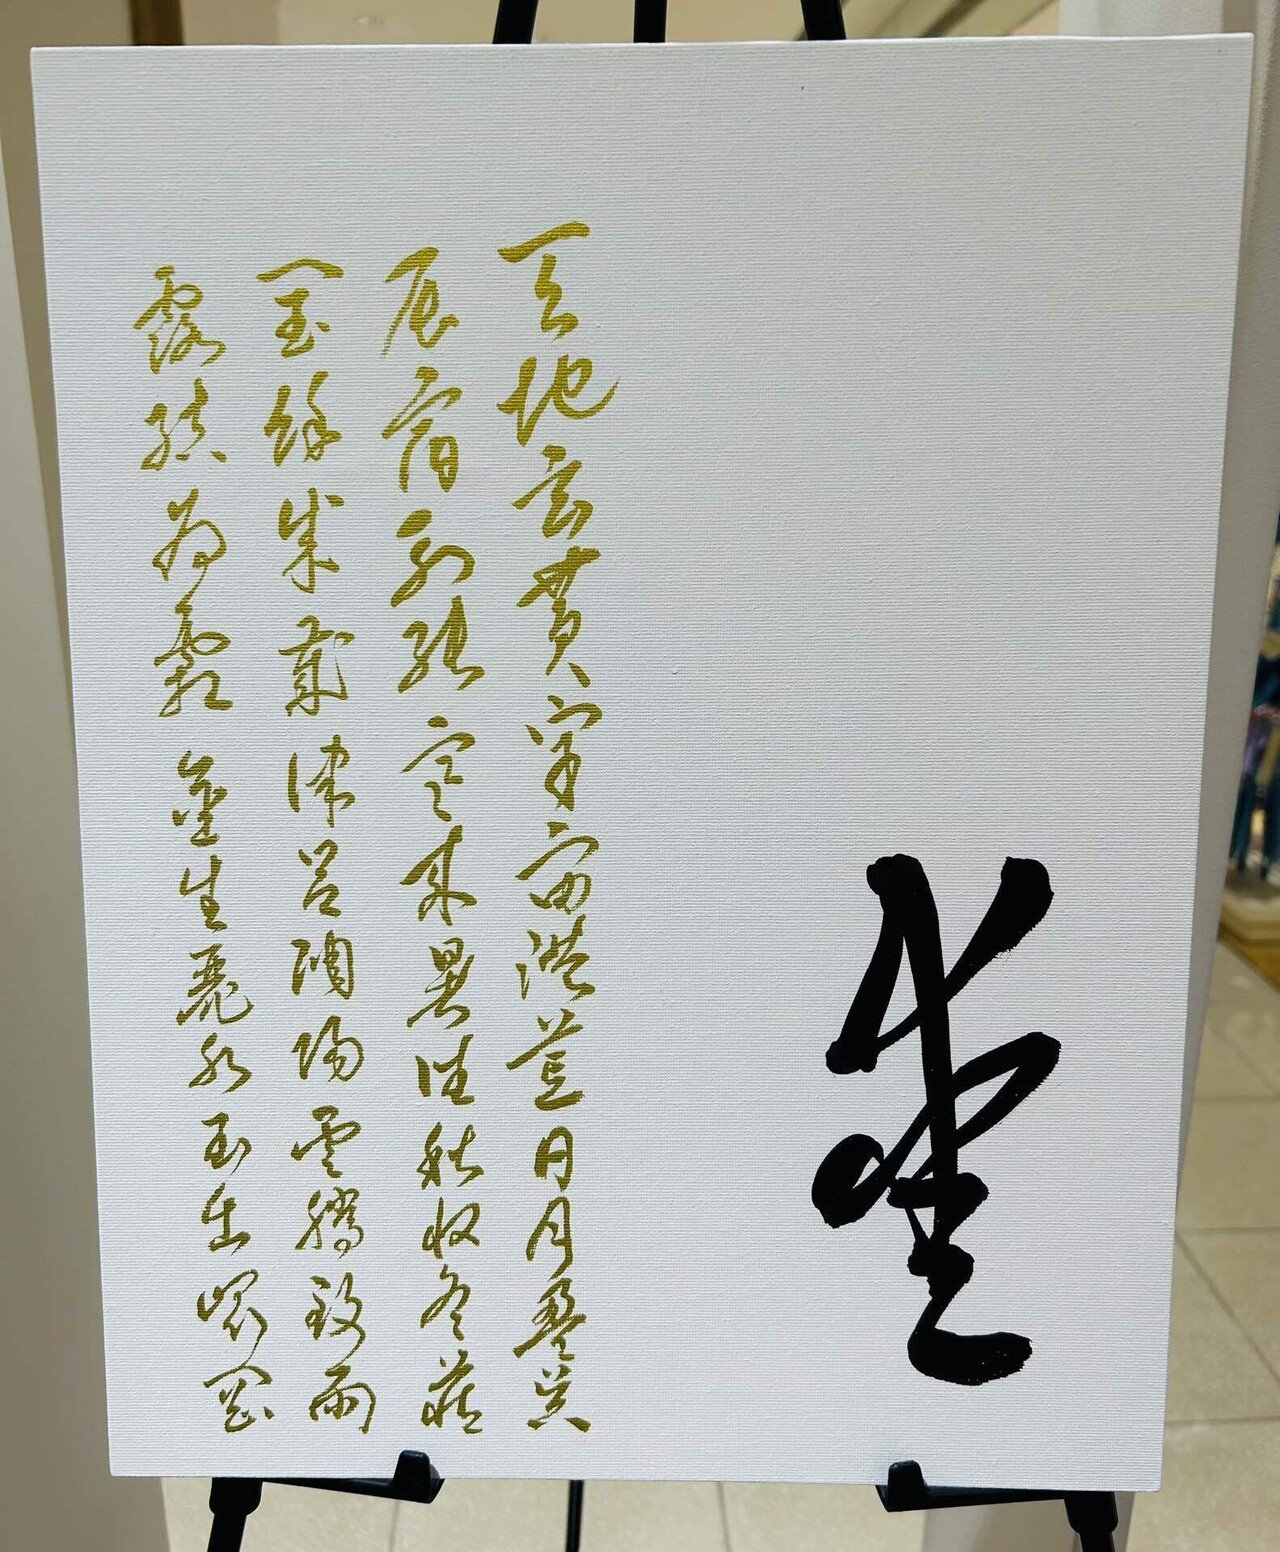 天地玄黃宇宙洪荒日月盈昃
辰宿列張寒來暑往秋收冬藏
閏餘成歲律呂調陽雲騰致雨
露結為霜金生麗水玉出崑岡